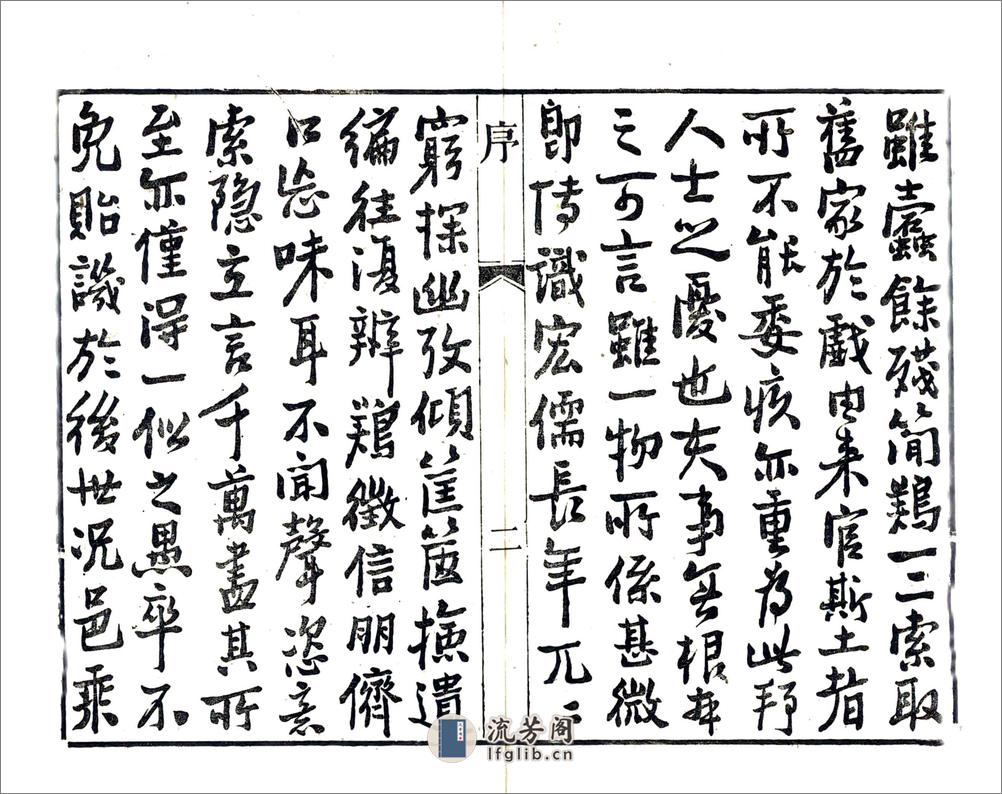 雖蠹餘殘簡鷄一二索取
舊家於戲由来官斯土者
所不能委疚亦重為此邦
人士之憂也夫事無根本
之可言雖一物所係甚微
即博識宏儒長年兀〻
序
二
窮探幽攷傾筐篋摭遺
編往復辨難徵信朋儕
口忘味耳不聞聲恣意
索隱立言千萬盡其所
至亦僅得一似之愚卒不
免貽譏於後世況邑乘
流芳阁
lfglib.cn